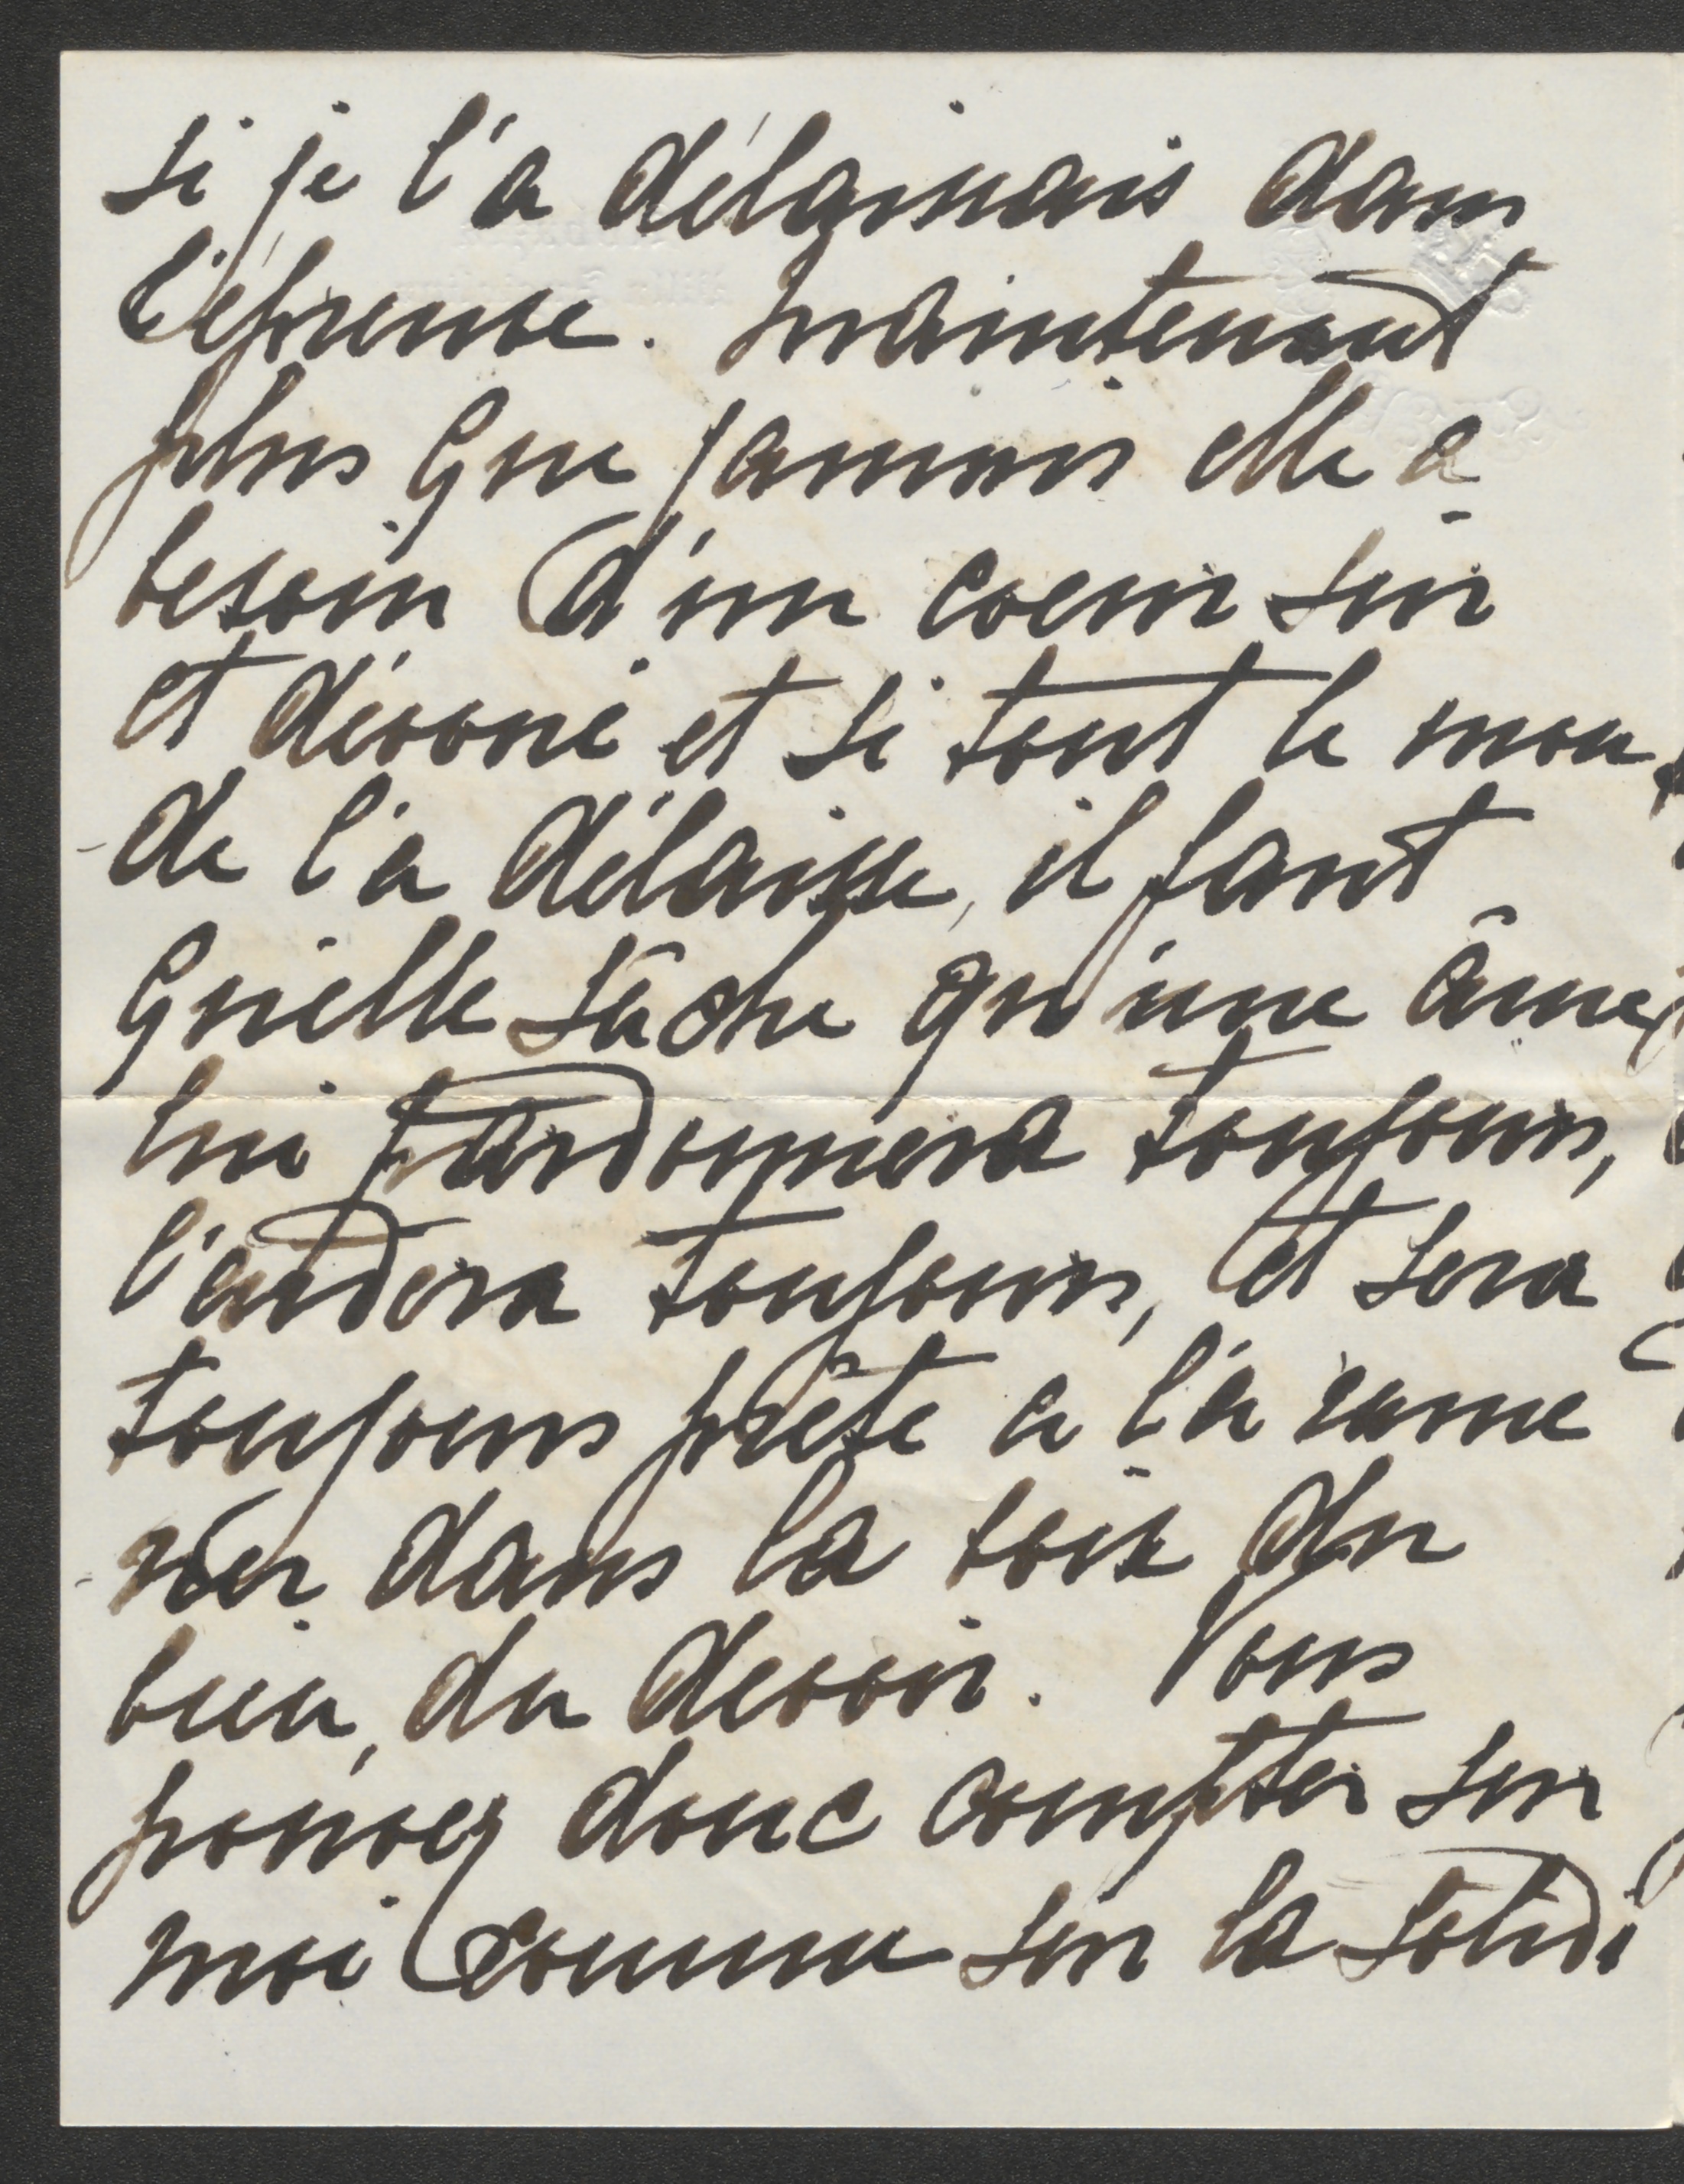 si je l'a délaissais dans
l'épreuve. Maintenant
plus que jamais elle a
besoin d'un coeur sur
et dévoué et si tout le mon
-de l'a délaisse, il faut
qu'elle sâche qu'une âme
lui pardonnera toujours,
l'aidera toujours, et sera
toujours prête a l'a rame
-ner dans la voix du
bien, du devoir. Vous
pouvez donc compter sur
moi comme sur la solidi